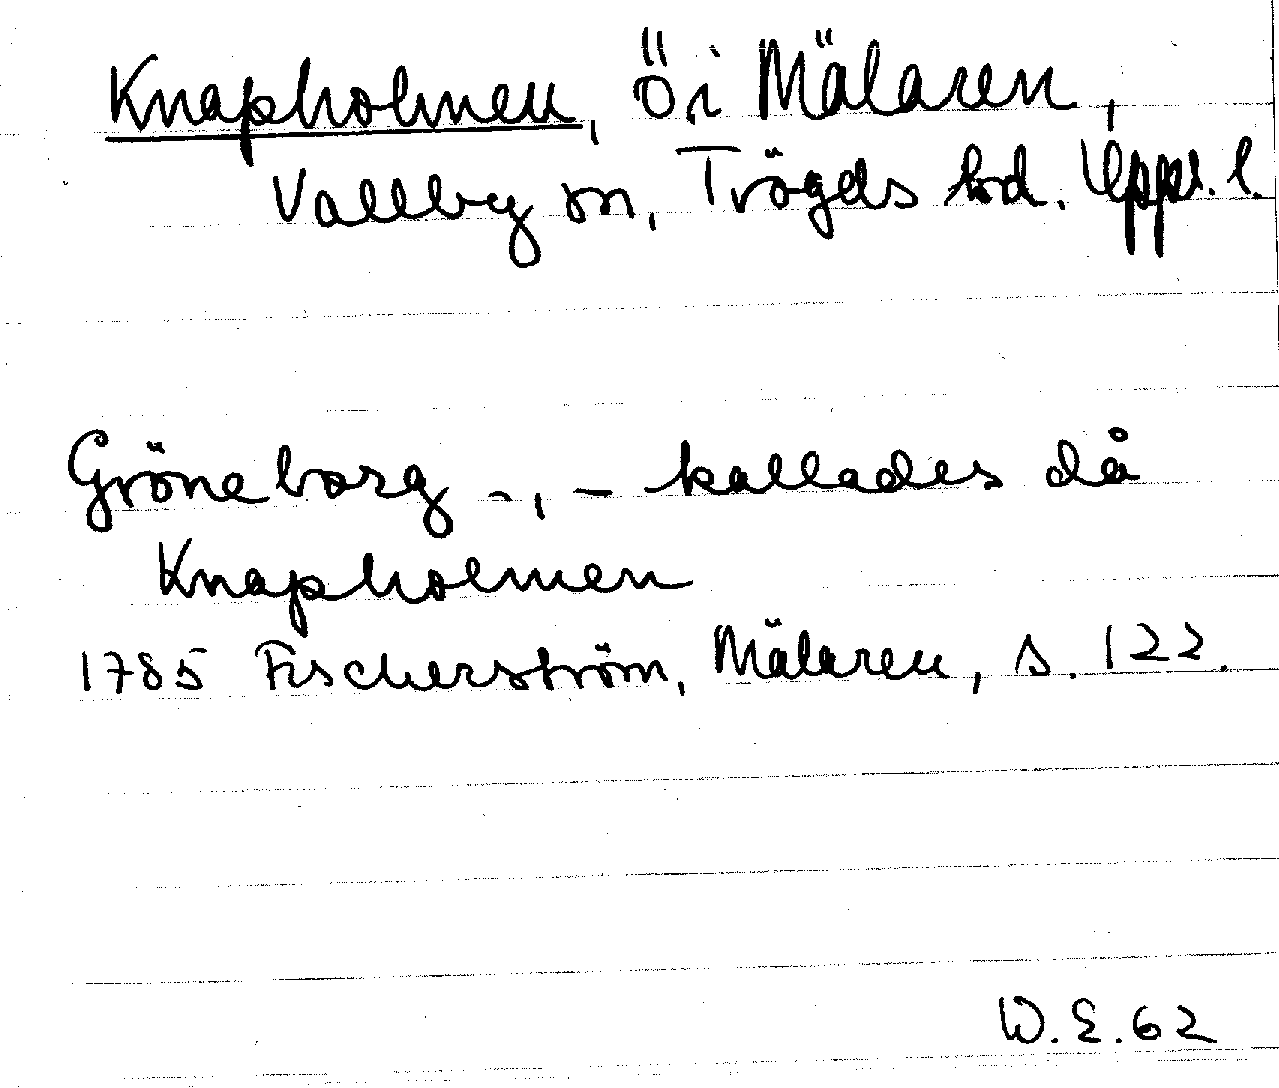 Knapholmen, Ö i Mälaren,
Vallby sn, Trögds hd. Upps. l.
Gröneborg -,- kallades då
Knapholmen
1785 Fischerström, Mälaren, s. 122.
W.E.62